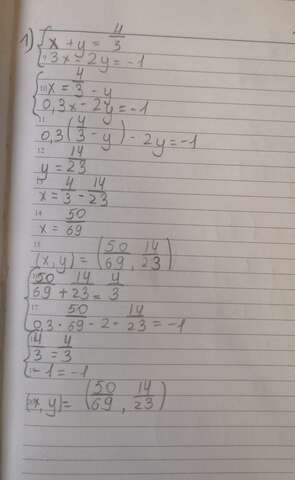 1) { x + y = 4/3
0,3x = 2y = -1
{ x = 4/3 - y
0,3x - 2y = -1
0,3(4/3 - y) - 2y = -1
y = 14/23
x = 4/3 - 14/23
x = 50/69
(x, y) = (50/69, 14/23)
{ 50/69 + 14/23 = 4/3
0,3 · 50/69 - 2 - 14/23 = -1
{ 4/3 = 4/3
-1 = -1
(x, y) = (50/69, 14/23)